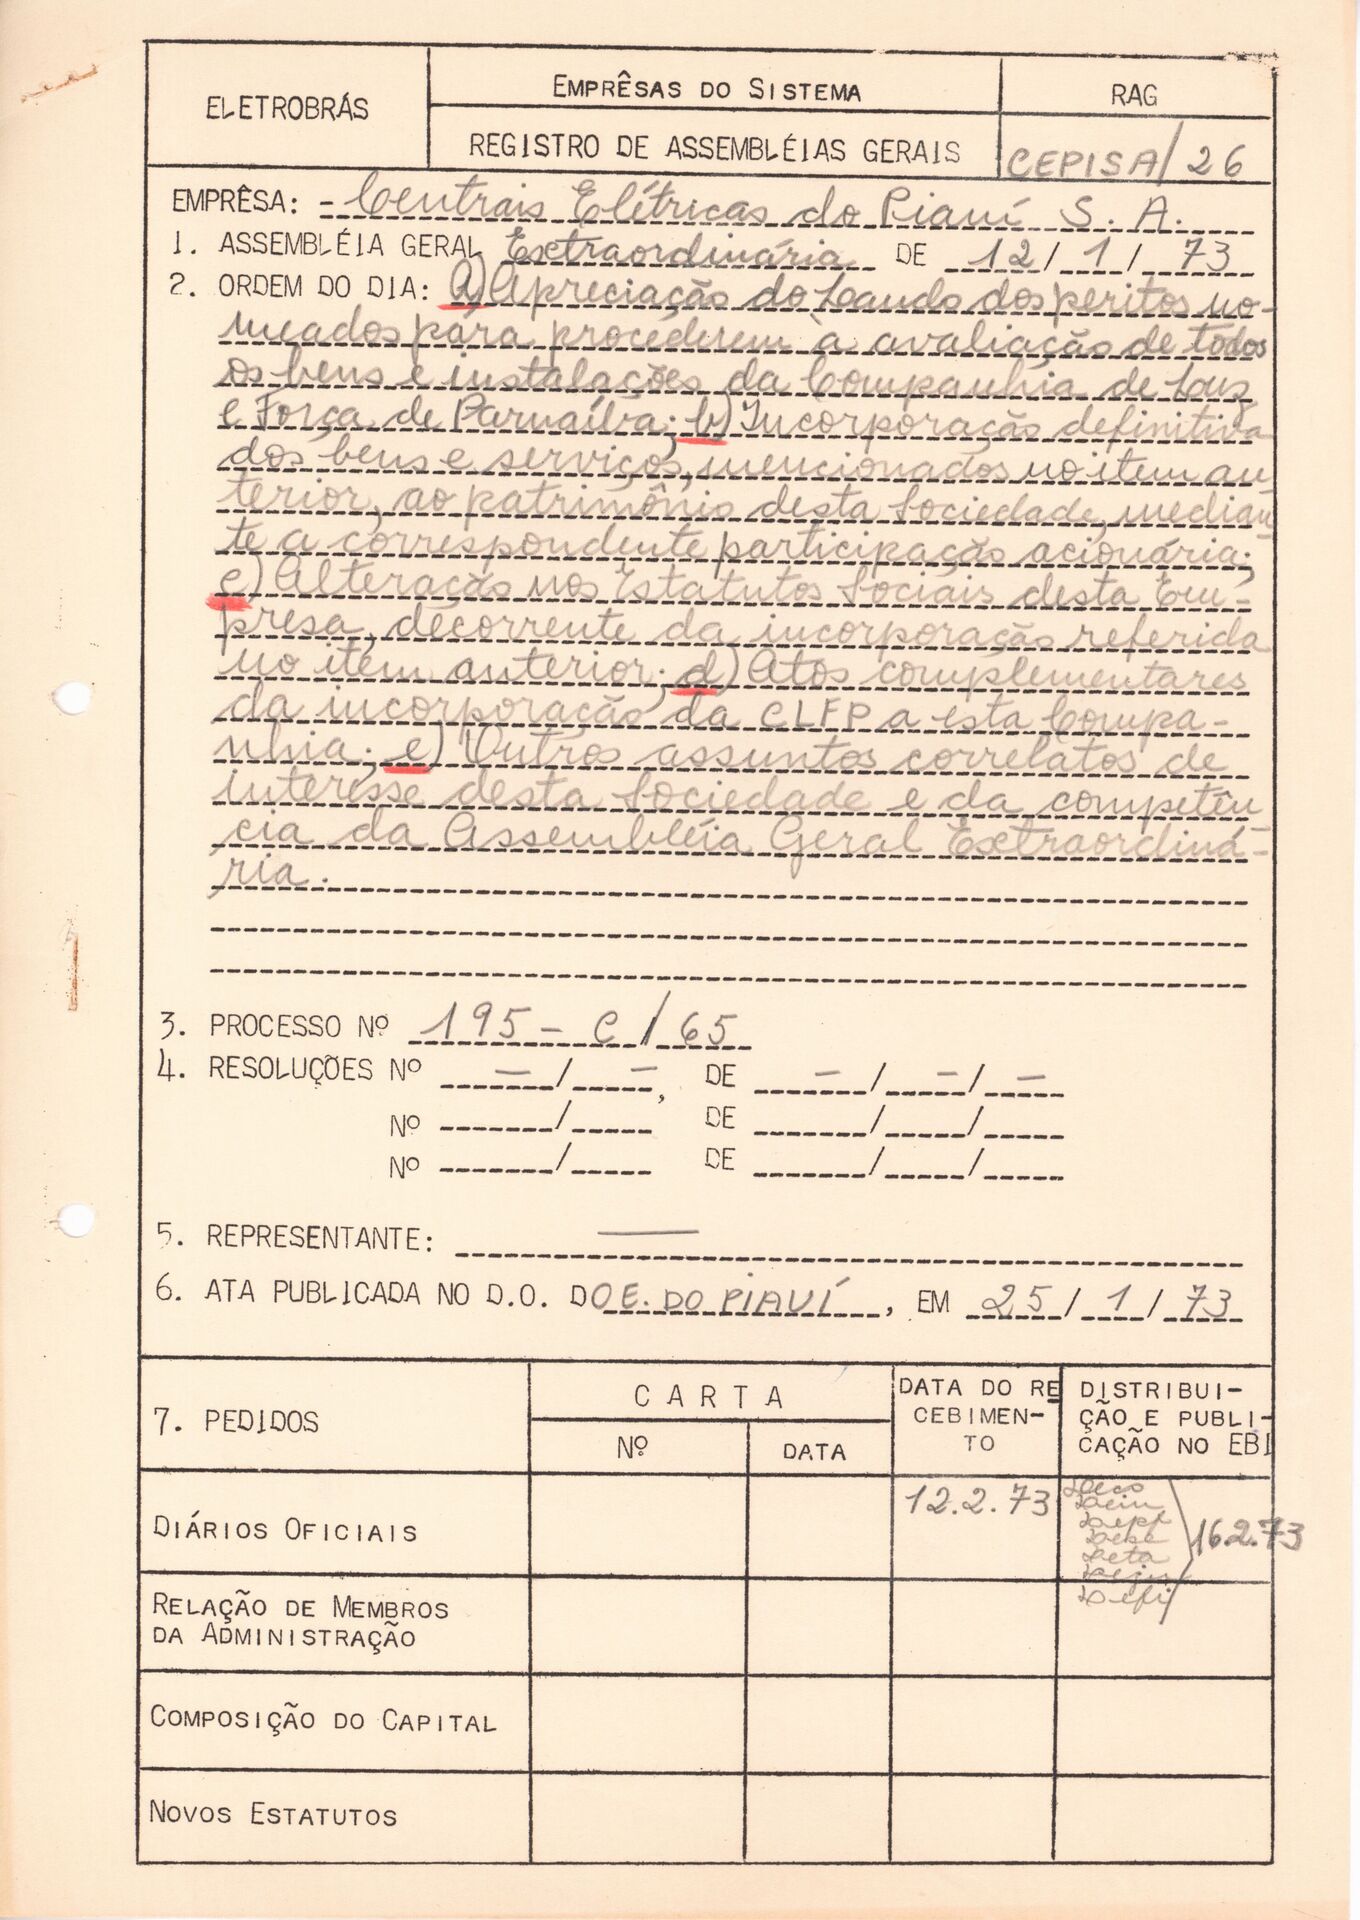 ELETROBRÁS
EMPRÊSAS DO SISTEMA
RAG
REGISTRO DE ASSEMBLÉIAS GERAIS
CEPISA/26
EMPRÊSA: - Centrais Elétricas do Piauí S. A.
1. ASSEMBLÉIA GERAL Extraordinária DE 12/1/73
2. ORDEM DO DIA: a) Apreciação do Laudo dos peritos no-
meados para procederem à avaliação de todos
os bens e instalações da Companhia de Luz
e Força de Parnaíba; b) Incorporação definitiva
dos bens e serviços, mencionados no item an-
terior, ao patrimônio desta Sociedade, median-
te a correspondente participação acionária;
c) Alteração nos Estatutos Sociais desta Em-
presa, decorrente da incorporação referida
no item anterior; d) Atos complementares
da incorporação da CLFP a esta Compa-
nhia; e) Outros assuntos correlatos de
interesse desta Sociedade e da competên-
cia da Assembléia Geral Extraordiná-
ria.
3. PROCESSO Nº 195 - C/65
4. RESOLUÇÕES Nº -/-, DE -/-/-
Nº / DE / /
Nº / DE / /
5. REPRESENTANTE: —
6. ATA PUBLICADA NO D.O. DO E. DO PIAUÍ, EM 25/1/73
7. PEDIDOS
CARTA
Nº
DATA
DATA DO RE
CEBIMEN-
TO
DISTRIBUI-
ÇÃO E PUBLI-
CAÇÃO NO EBI
DIÁRIOS OFICIAIS
12.2.73
16.2.73
RELAÇÃO DE MEMBROS
DA ADMINISTRAÇÃO
COMPOSIÇÃO DO CAPITAL
NOVOS ESTATUTOS